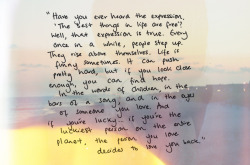 "Have you ever heard the expression,
"The best things in life are free"?
Well, that expression is true. Every
once in a while, people step up.
They rise above themselves. Life is
funny sometimes. It can push
pretty hard, but if you look close
enough you can find hope.
In the words of children, in the
bars of a song, and in the eyes
of someone you love. And
if you're lucky, if you're the
luckiest person on the entire
planet, the person you love
decides to love you back."